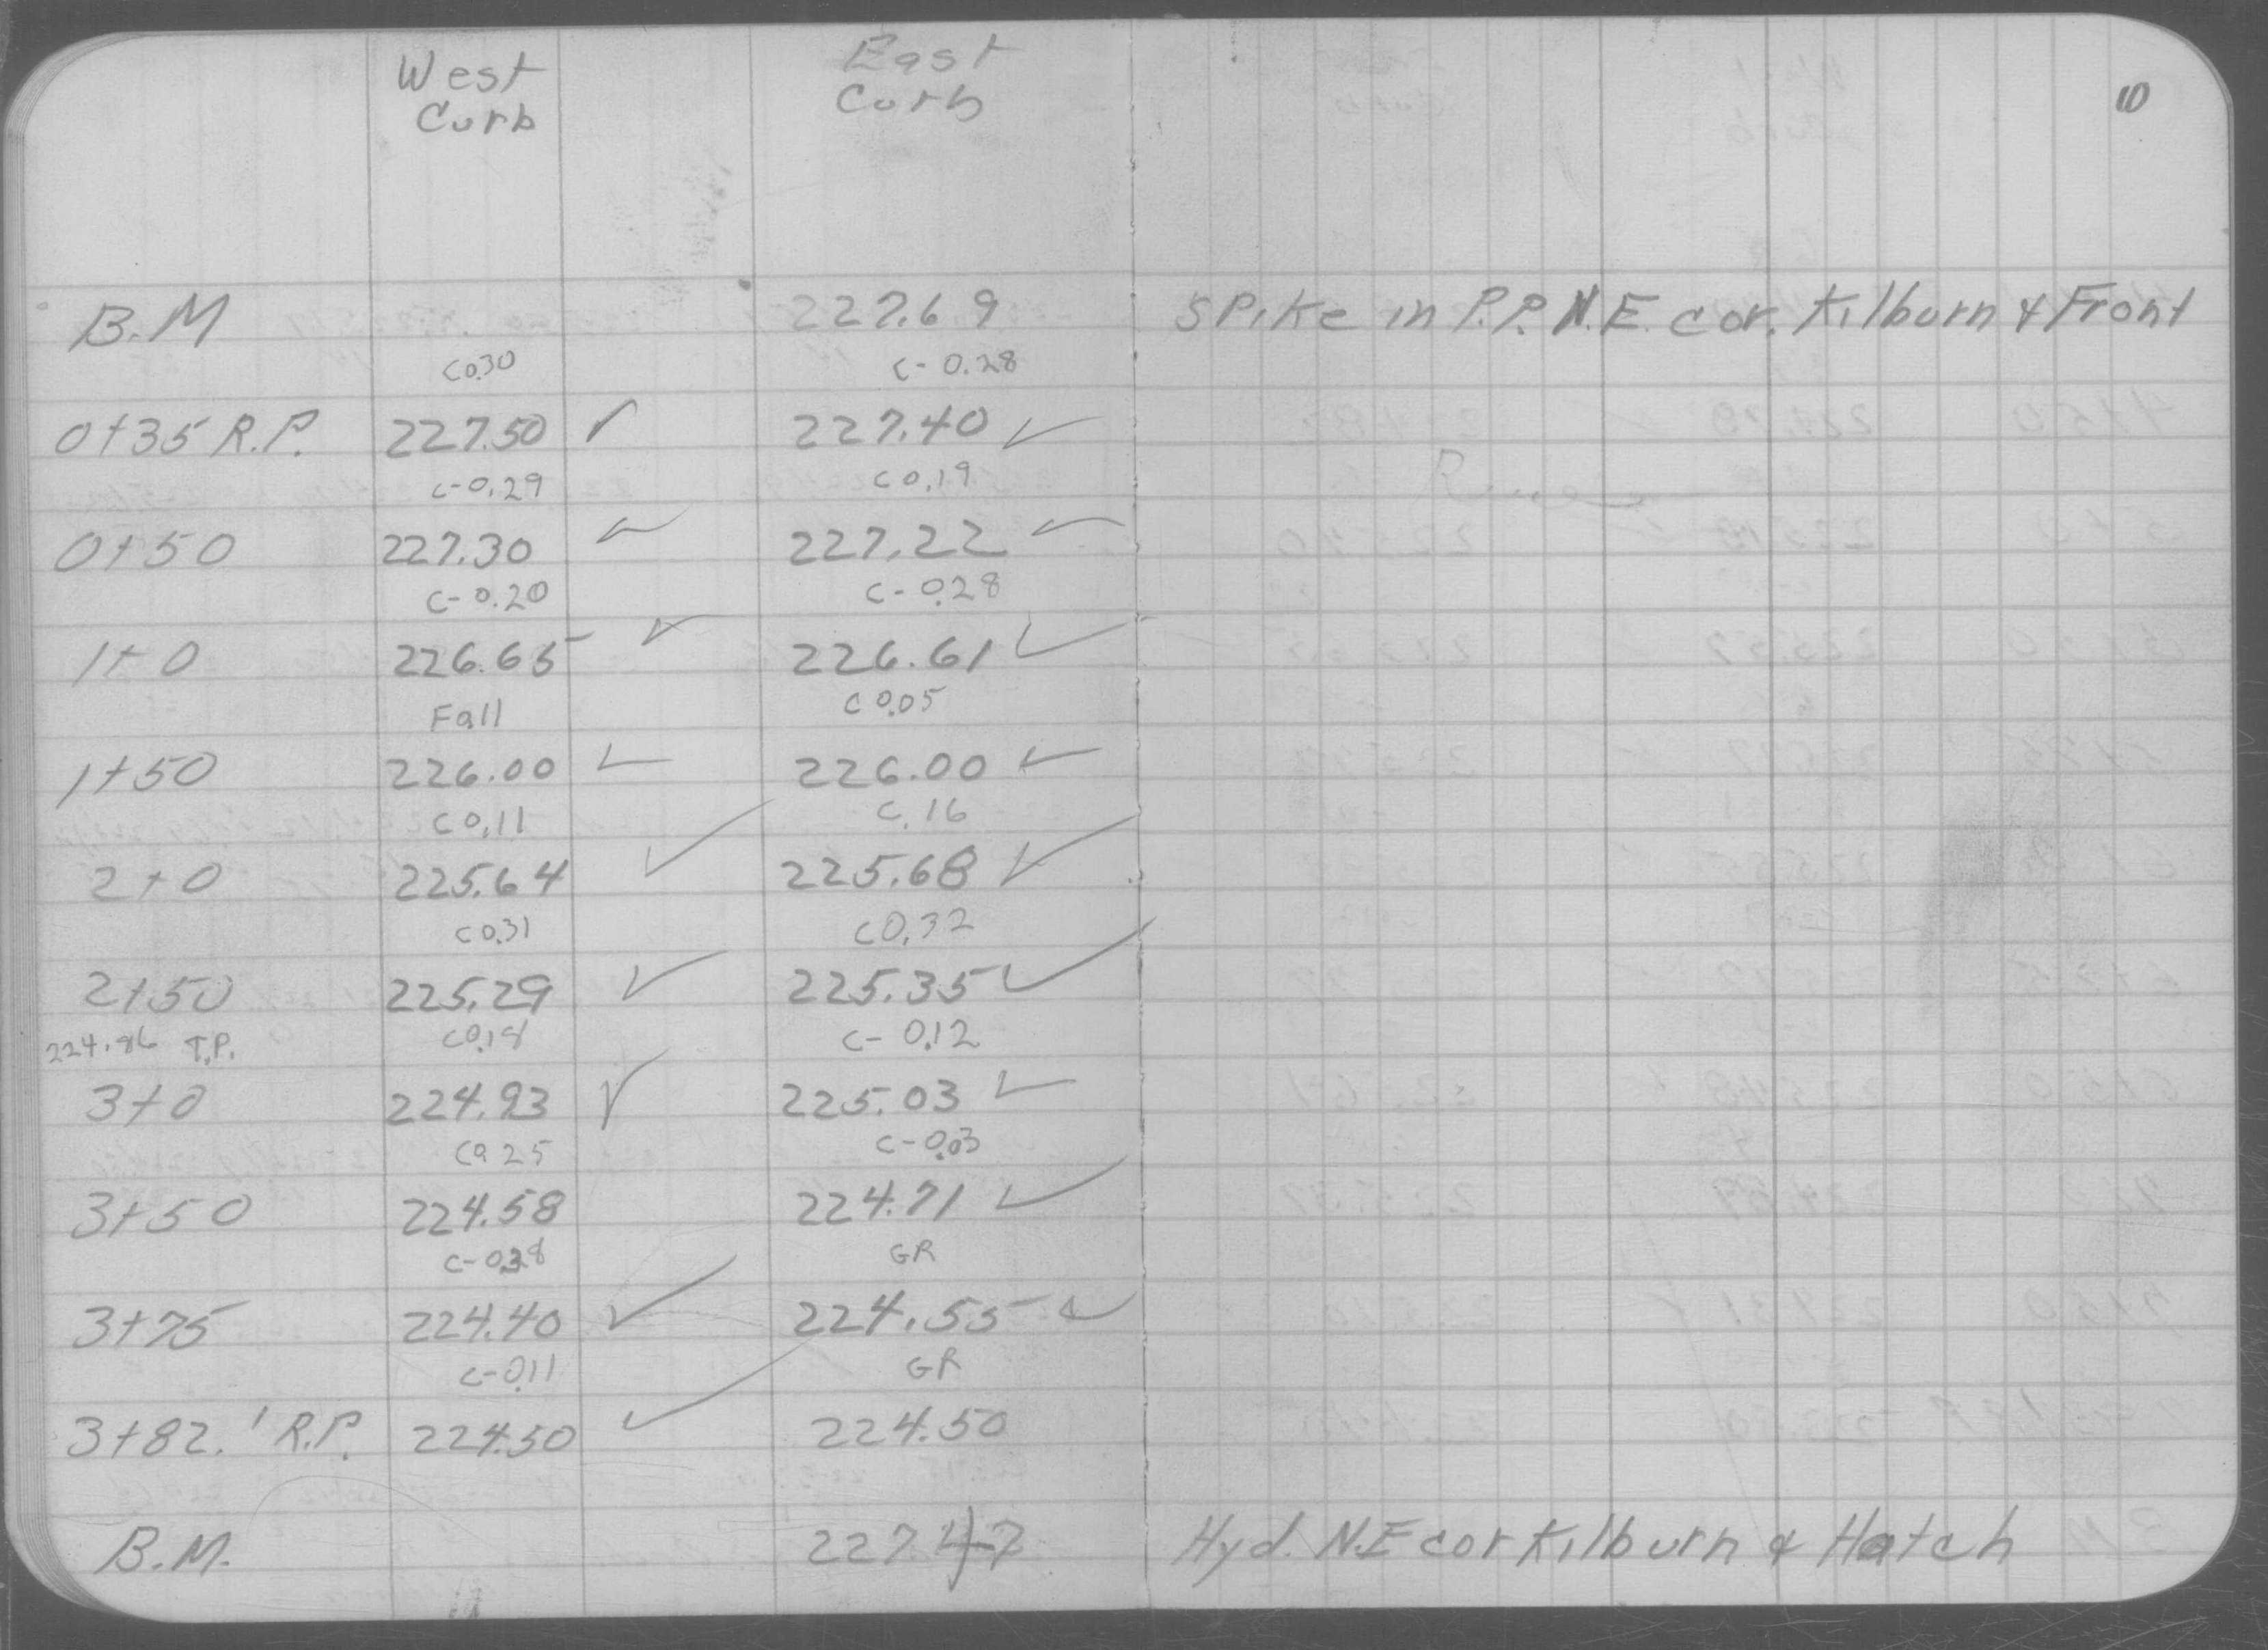 West East
Curb Curb
10
B.M 227.69 Spike in P.P. N.E. cor. Kilburn & Front
C0.30 C-0.28
0+35 R.P. 227.50 ✓ 227.40 ✓
C-0.29 C0.19
0+50 227.30 ✓ 227.22 ✓
C-0.20 C-0.28
1+0 226.65 ✓ 226.61 ✓
Fall C0.05
1+50 226.00 ✓ 226.00 ✓
C0.11 C.16
2+0 225.64 ✓ 225.68 ✓
C0.31 C0.32
2+50 225.29 ✓ 225.35 ✓
224.86 T.P. C0.18 C-0.12
3+0 224.93 ✓ 225.03 ✓
C0.25 C-0.03
3+50 224.58 224.71 ✓
GR
3+75 224.40 ✓ 224.55 ✓
C-0.11 GR
3+82.1 R.P. 224.50 ✓ 224.50
B.M. 227.47 Hyd. N.E cor Kilburn & Hatch